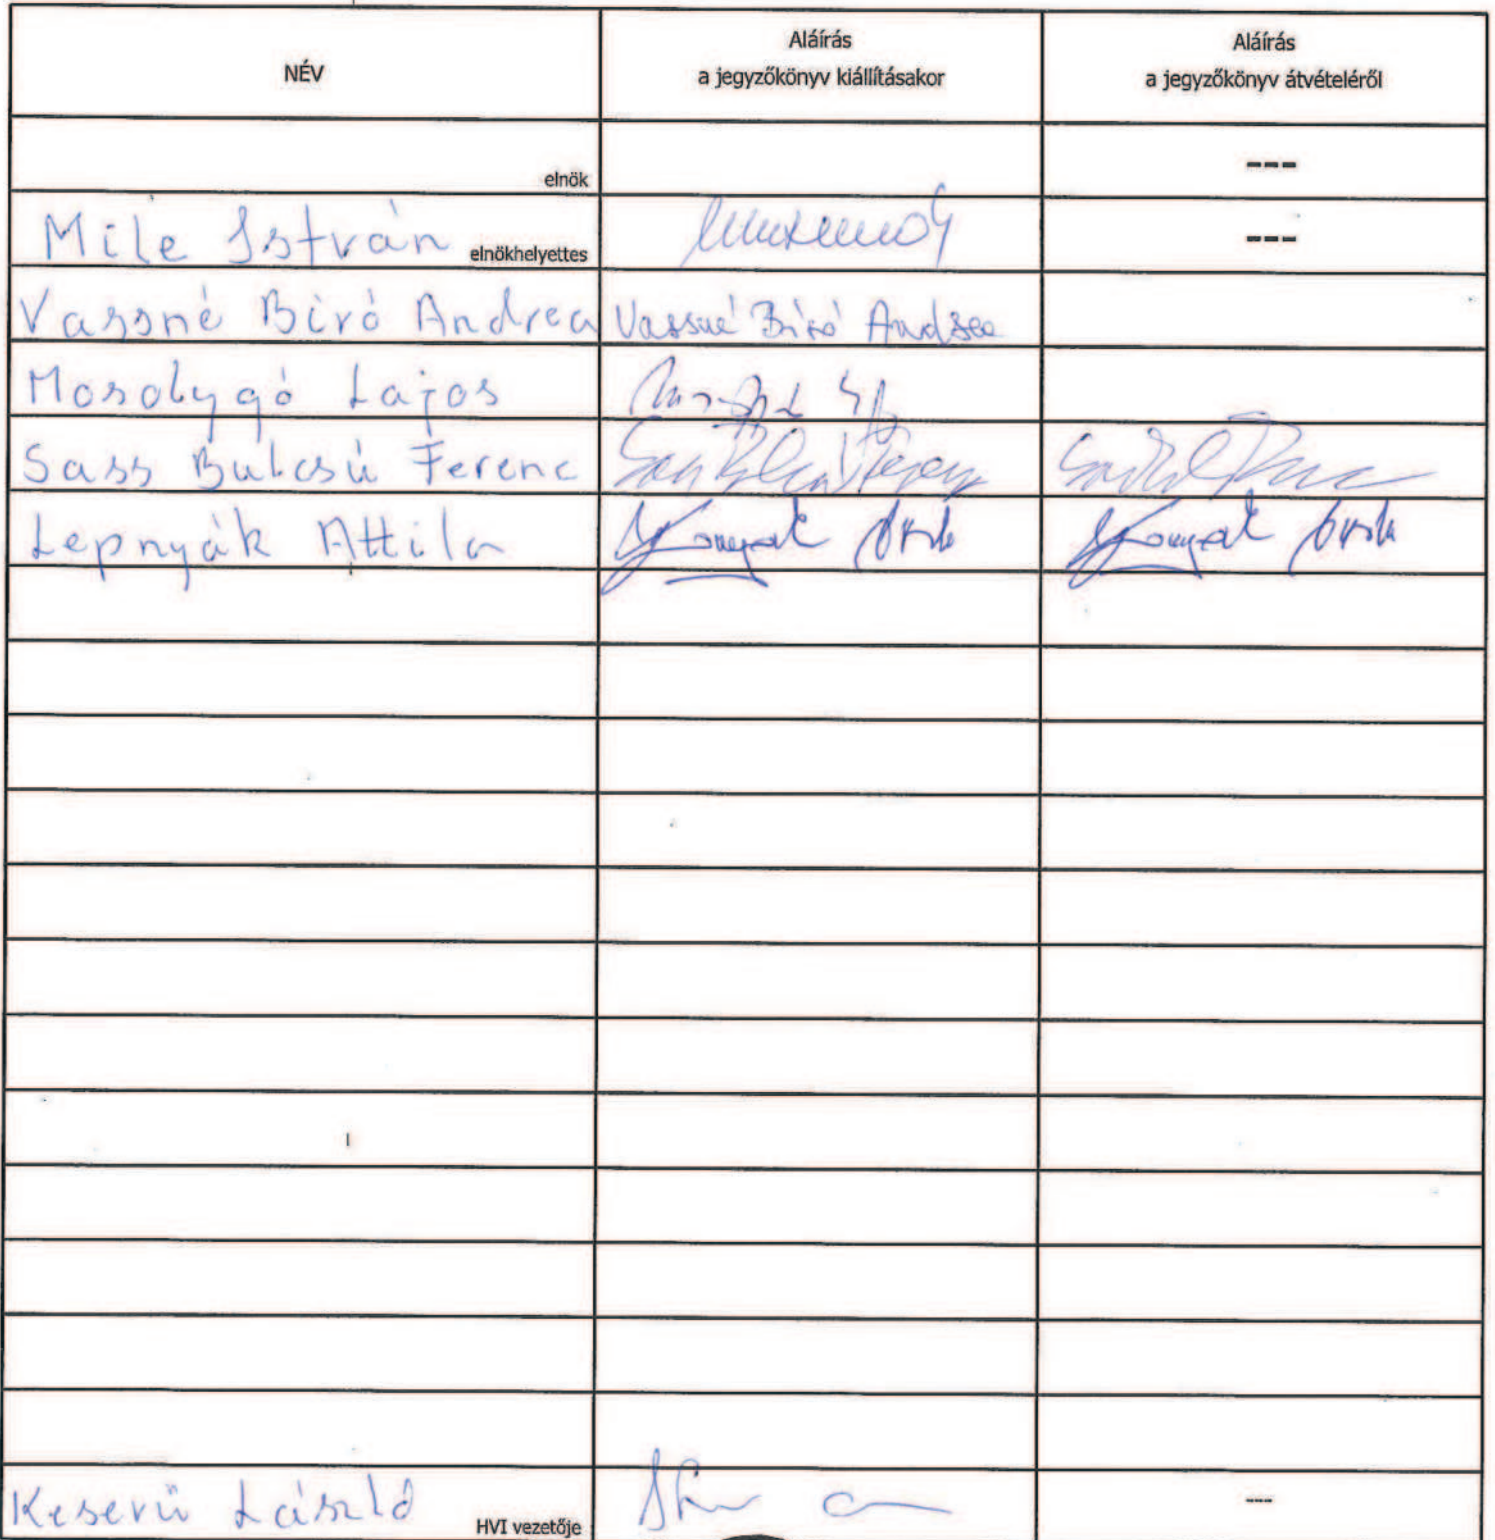 NÉV
Aláírás
a jegyzőkönyv kiállításakor
Aláírás
a jegyzőkönyv átvételéről
elnök
---
Mile István elnökhelyettes
---
Vassné Bíró Andrea Vassné Bíró Andrea
Mosolygó Lajos
Sass Bulcsú Ferenc
Lepnyák Attila
Keserű László HVI vezetője
---